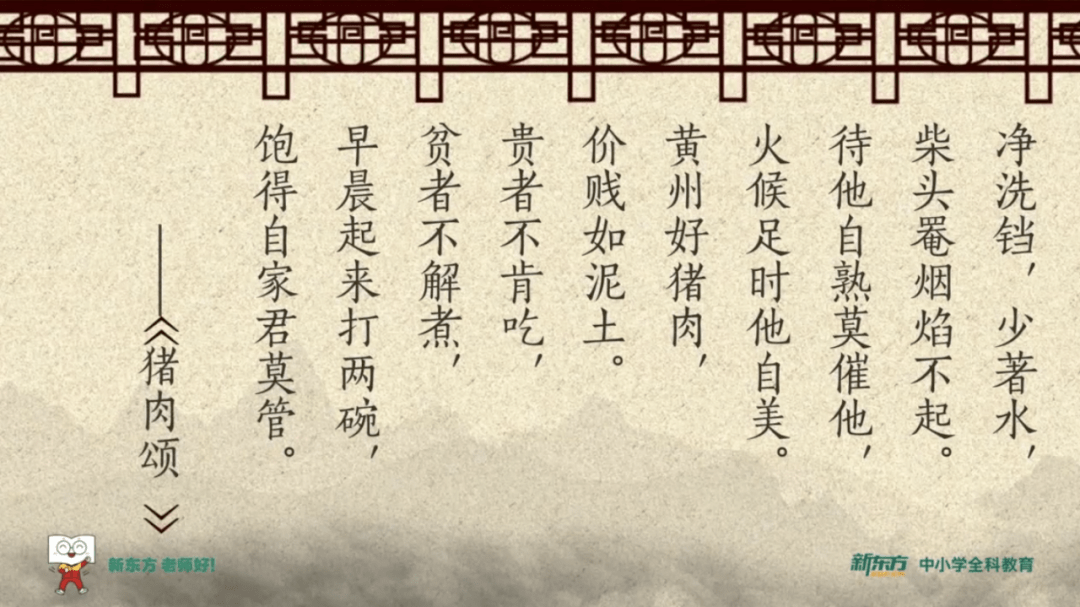 净洗铛，少著水，
柴头罨烟焰不起。
待他自熟莫催他，
火候足时他自美。
黄州好猪肉，
价贱如泥土。
贵者不肯吃，
贫者不解煮，
早晨起来打两碗，
饱得自家君莫管。
——《猪肉颂》
新东方 老师好！
新东方 中小学全科教育